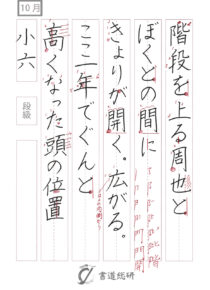 10月
階段を上る周也と
ぼくとの間に
きょりが開く。広がる。
ここ一年でぐんと
高くなった頭の位置
小六
段級
書道総研